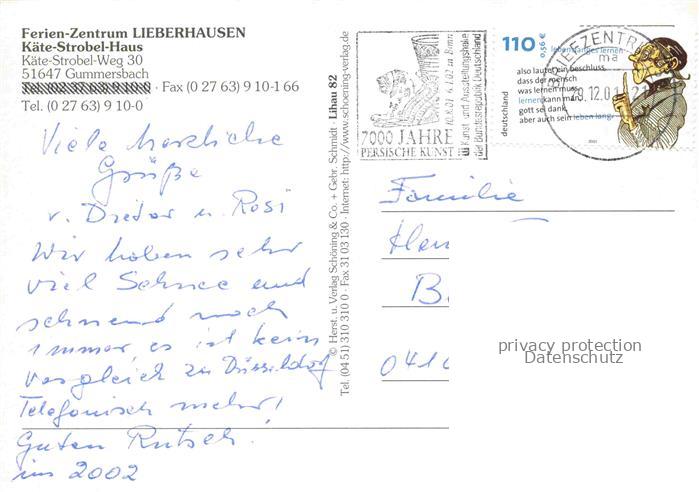 Ferien-Zentrum LIEBERHAUSEN
Käte-Strobel-Haus
Käte-Strobel-Weg 30
51647 Gummersbach
· Fax (0 27 63) 9 10-1 66
Tel. (0 27 63) 9 10-0
Viele herzliche
Grüße
v. Dieter u. Rosi
Wir haben sehr
viel Schnee und
schneid noch
immer, es ist kein
vergleich zu Düsseldorf
Telefonisch mehr!
Guten Rutsch!
ins 2002
© Herst. u. Verlag Schöning & Co. + Gebr. Schmidt · Lihau 82
Tel. (04 51) 310 310 0 · Fax 31 03 130 · Internet: http://www.schoening-verlag.de
7000 JAHRE
PERSISCHE KUNST
Kunst- und Ausstellungshalle
der Bundesrepublik Deutschland
in Bonn
110
0,56 €
lebenslanges lernen
also lautet ein beschluss,
dass der mensch
was lernen muss.
lernen kann man,
gott sei dank,
aber auch sein leben lang.
deutschland
BRIEFZENTRUM
.12.01
21
Familie
B
0410
privacy protection
Datenschutz